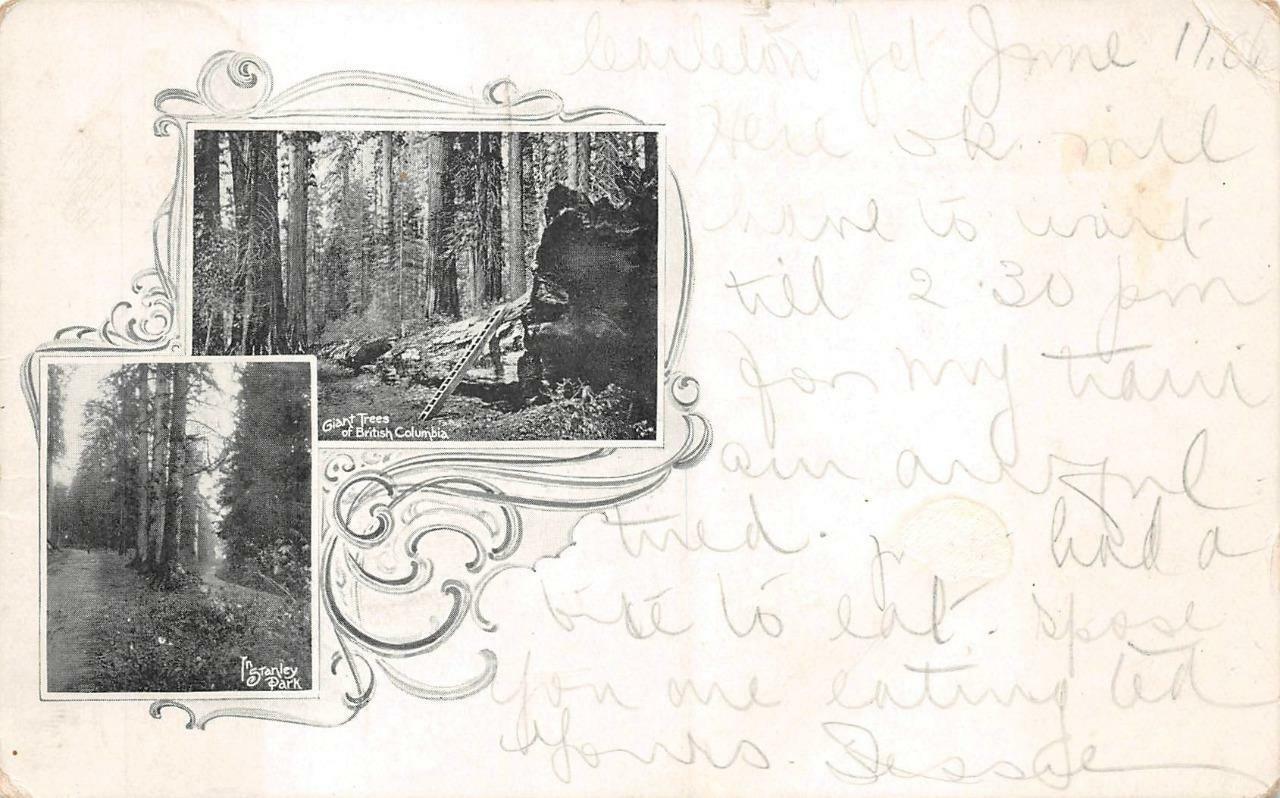 Carleton Jct June 11.06
Here ok will
have to wait
till 2.30 pm
for my train
am awful
tired. had a
bite to eat. spose
you are eating
Yours. Jessie
Giant Trees
of British Columbia
In
Stanley
Park